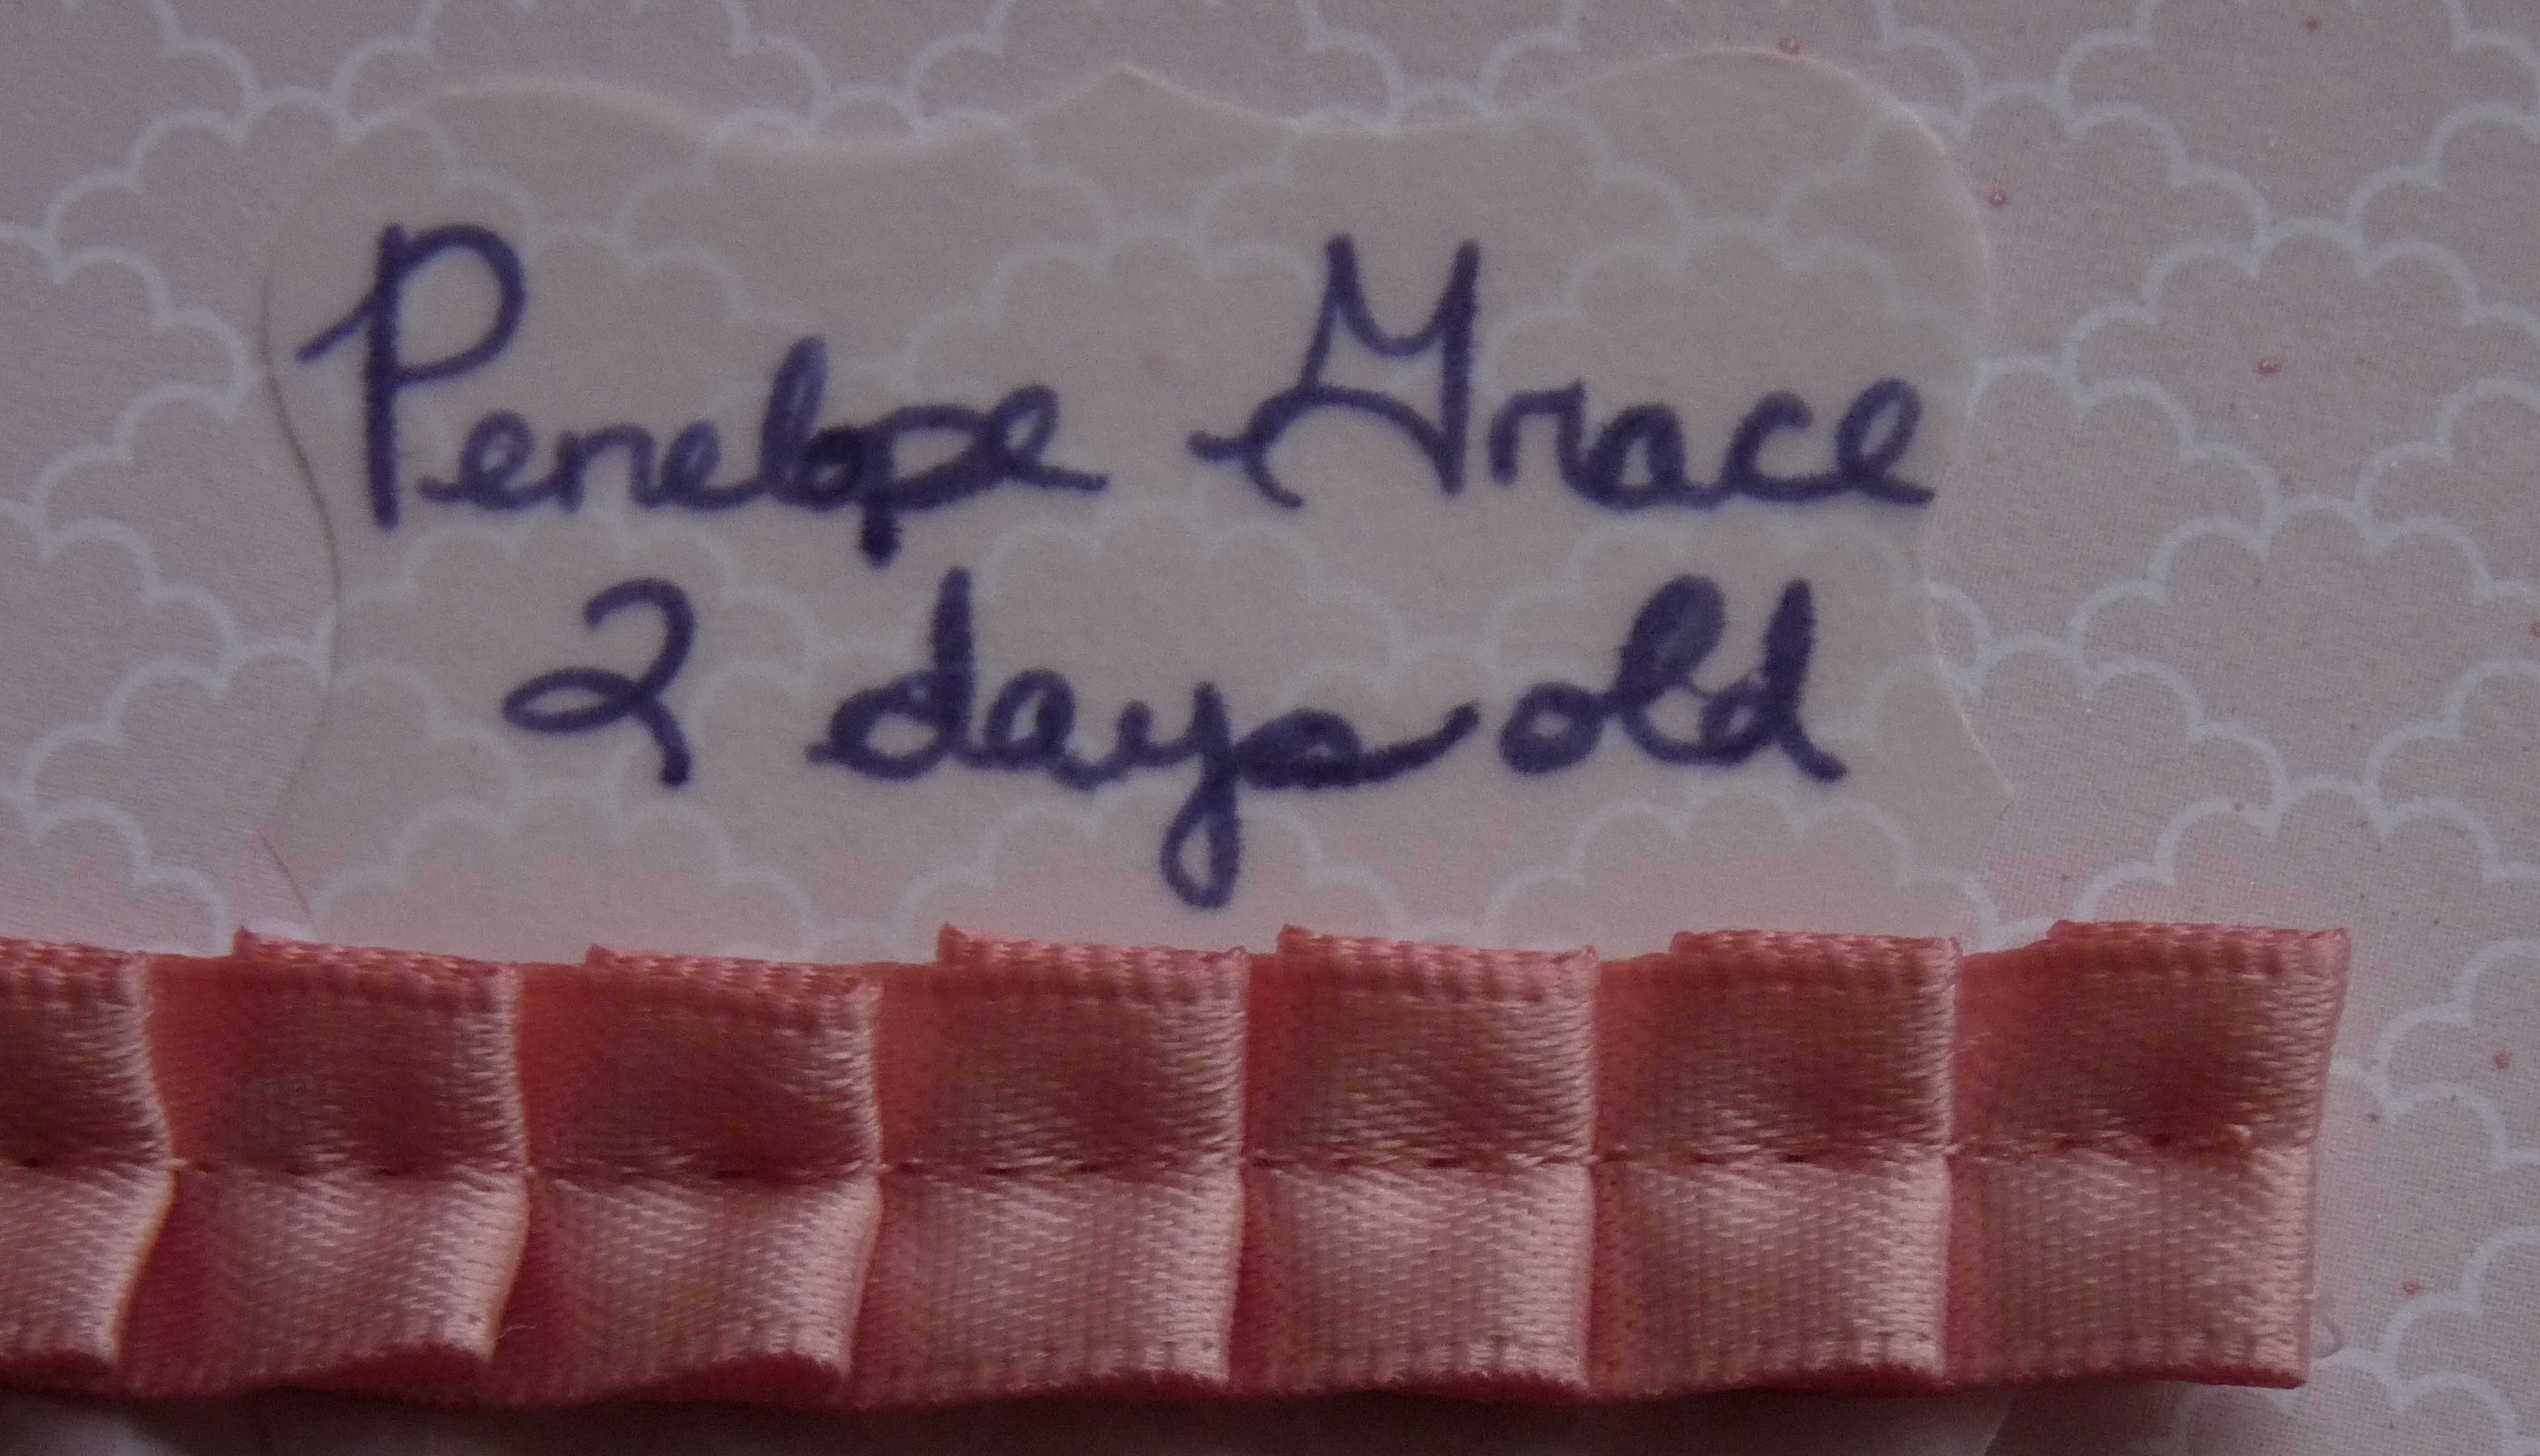 Penelope Grace
2 days old